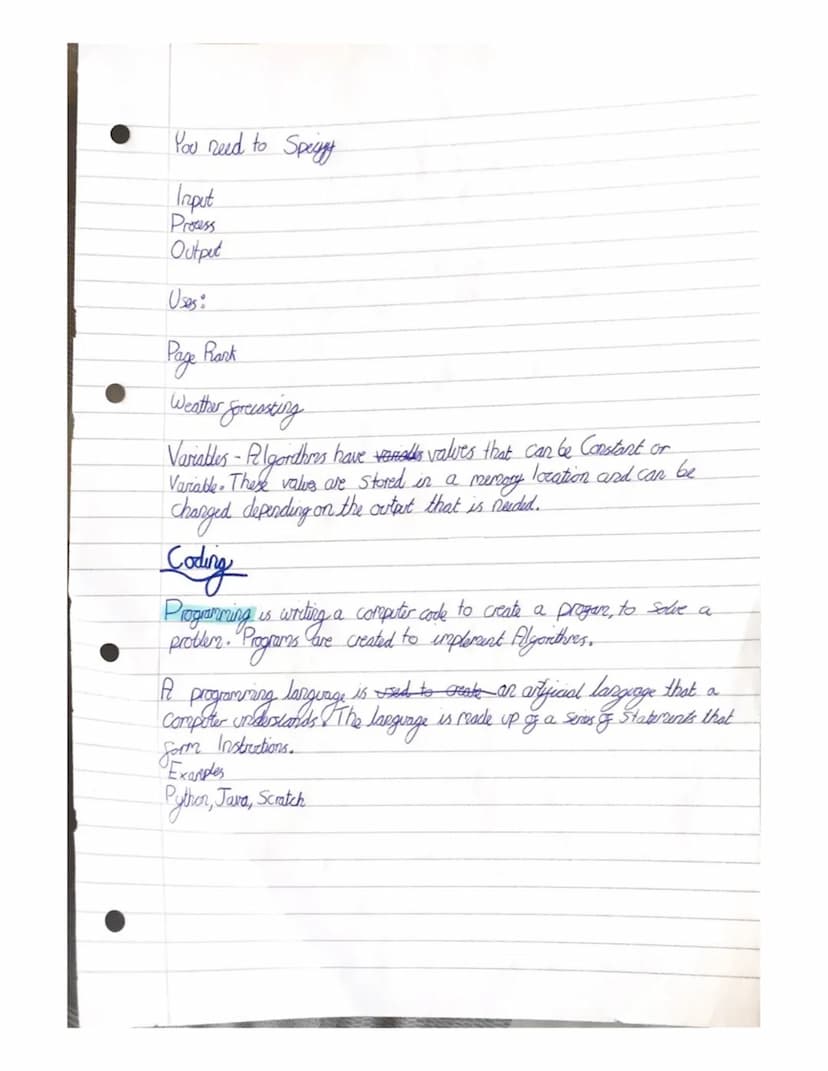 You need to Speciyfy
Input
Process
Output
Uses:
Page Rank
Weather forecasting
Variables - Algorithms have variables values that can be Constant or
Variable. These values are stored in a memory location and can be
changed depending on the output that is needed.
Coding
Programming is writing a computer code to create a program, to solve a
problem. Programs are created to implement Algorithms.
A programming language is used to create an artificial language that a
Computer understands. The language is made up of a series of Statements that
form Instructions.
Examples
Python, Java, Scratch